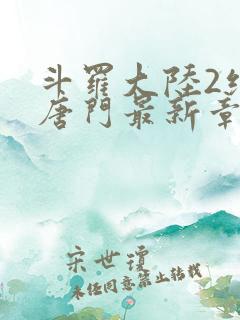 斗羅大陸2絕
唐門最新章
宋世瓊
未經同意禁止转载